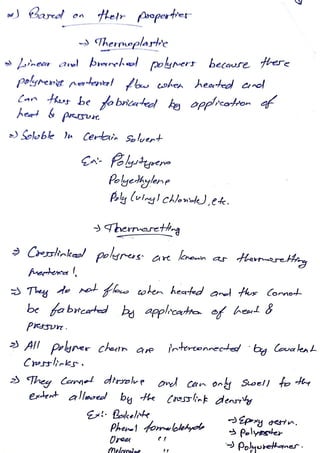 *) Based on their properties
→ Thermoplastic
⇒ Linear and branched polymers because these
polymeric material flow when heated and
can thus be fabricated by application of
heat & pressure
⇒) Soluble in certain solvent
Ex:- Polystyrene
Polyethylene
Poly (vinyl chloride), etc.
→ Thermosetting
⇒ Crosslinked polymers are known as thermosetting
material.
⇒ They do not flow when heated and thus cannot
be fabricated by application of heat &
pressure.
⇒) All polymer chain are interconnected by covalent
crosslinks.
⇒) They cannot dissolve and can only swell to the
extent allowed by the crosslink density
Ex:- Bakelite →Epoxy resin.
Phenol formaldehyde → Polyester
Urea " → Polyurethanes.
Melamine "